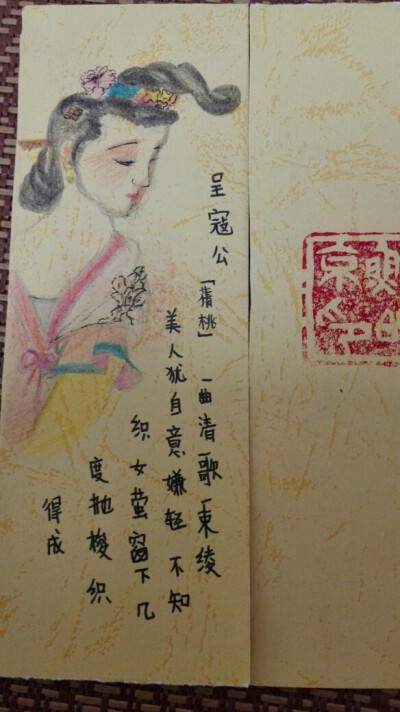 呈寇公「蒨桃」一曲清歌一束绫
美人犹自意嫌轻 不知
织女萤窗下几
度抛梭织
得成